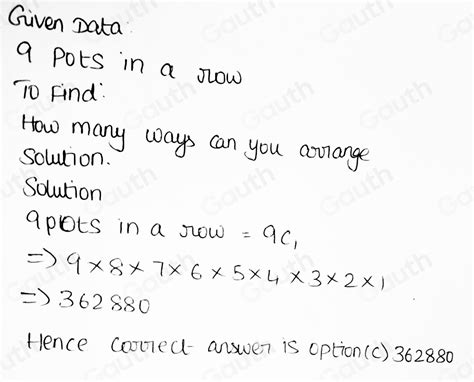 Given Data:
9 pots in a row
To Find:
How many ways can you arrange
Solution.
Solution
9 pots in a row = 9C₁
=> 9 × 8 × 7 × 6 × 5 × 4 × 3 × 2 × 1
=> 362880
Hence correct answer is option (c) 362880